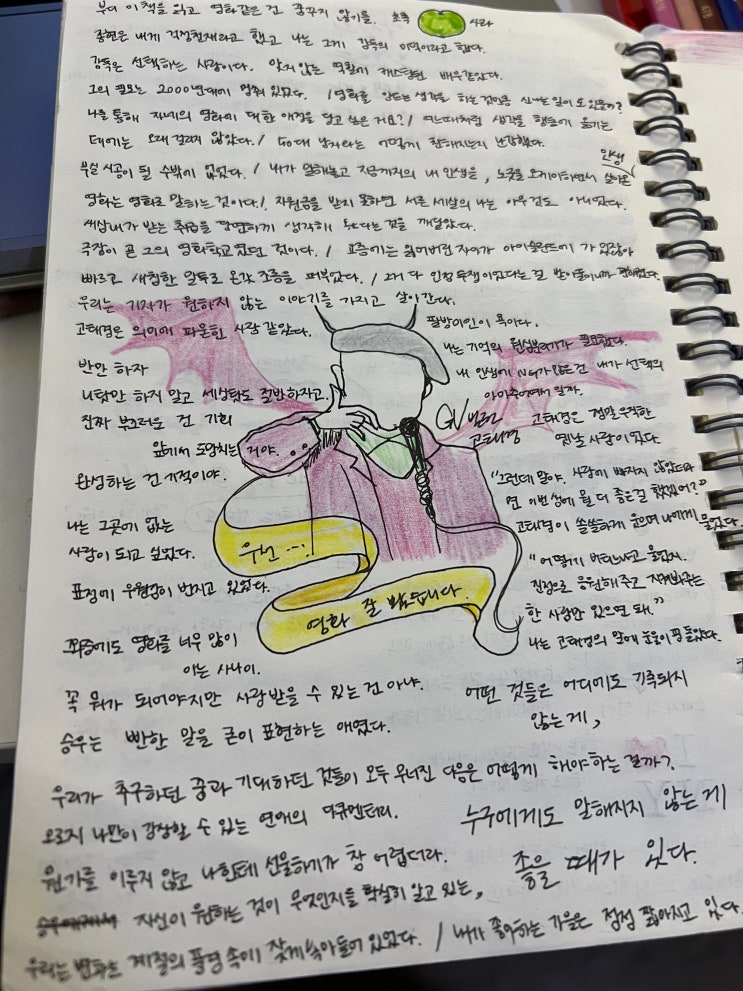 부디 이 책을 읽고 영화같은 건 꿈꾸지 않기를. 초록 사과
종현은 내게 걱정천재라고 했고 나는 그게 감독의 이명이라고 했다.
감독은 선택하는 사람이다. 맞지 않는 역할에 캐스팅된 배우같았다.
그의 필모는 2000년대에 멈춰 있었다. / 영화를 만드는 생각을 하는 것만큼 신나는 일이 또 있을까?
나를 통해 자네의 영화에 대한 애정을 담고 싶은 거요? / 여느때처럼 생각을 행동에 옮기는
데에는 오래 걸리지 않았다. / 50대 남자라는 어떻게 친해지는지 난감했다.
부실 시공이 될 수밖에 없었다. / 내가 말해놓고 지금까지의 내 인생을, 노굿을 오케이하면서 살아온 인생
영화는 영화로 말하는 것이다. / 지원금을 받지 못하면 서른 세살의 나는 아무 것도 아니었다.
세상 내가 받는 취급을 당연하게 생각해 왔다는 것을 깨달았다.
극장이 곧 그의 영화학교였던 것이다. / 요즘에는 잃어버린 자아가 아이슬란드에 가 있잖아
빠르고 새침한 말투로 온갖 조롱을 퍼부었다. / 그게 다 인정투쟁이었다는 걸 받아들이니까 편해졌다.
우리는 기자가 원하지 않는 이야기를 가지고 살아간다.
고태경은 의외에 파묻힌 사람 같았다.
팔방미인이 목아다.
나는 기억의 원심분리기가 필요했다.
반만 하자
내 인생에 NG가 많은 건 내가 선택의
내탓만 하지 말고 세상탓도 절반 하자고.
아마추어여서 일까.
진짜 부끄러운 건 기회
앞에서 도망치는 거야.
GV빌런
고태경
고태경은 정말 우직한
옛날 사람이었다.
완성하는 건 기적이야.
"그런데 말야. 사랑에 빠지지 않았더라
면 이번 생에 뭘 더 좋은걸 했겠어?"
고태경이 쓸쓸하게 웃으며 나에게 물었다.
나는 그곳에 없는
사람이 되고 싶었다.
우선…!
표정에 우월감이 번지고 있었다.
"어떻게 버티느냐고 물었지.
진심으로 응원해 주고 지켜봐주는
한 사람만 있으면 돼."
나는 고태경의 말에 눈물이 핑 돌았다.
영화 잘 봤습니다.
쪼잔에도 영화를 너무 많이
아는 사나이.
꼭 뭐가 되어야지만 사랑받을 수 있는 건 아냐.
어떤 것들은 어디에도 기록되지
않는 게,
승우는 뻔한 말을 굳이 표현하는 애였다.
우리가 추구하던 중과 기대하던 것들이 모두 무너진 다음은 어떻게 해야하는 걸까?
오로지 나만이 감상할 수 있는 연애의 다큐멘터리.
누구에게도 말해지지 않는 게
뭔가를 이루지 않고 나한테 선물하기가 참 어렵더라.
좋을 때가 있다.
자신이 원하는 것이 무엇인지를 확실히 알고 있는,
우리는 변하는 계절의 풍경 속에 잦게 녹아들어 있었다. / 내가 좋아하는 가을은 점점 짧아지고 있다.